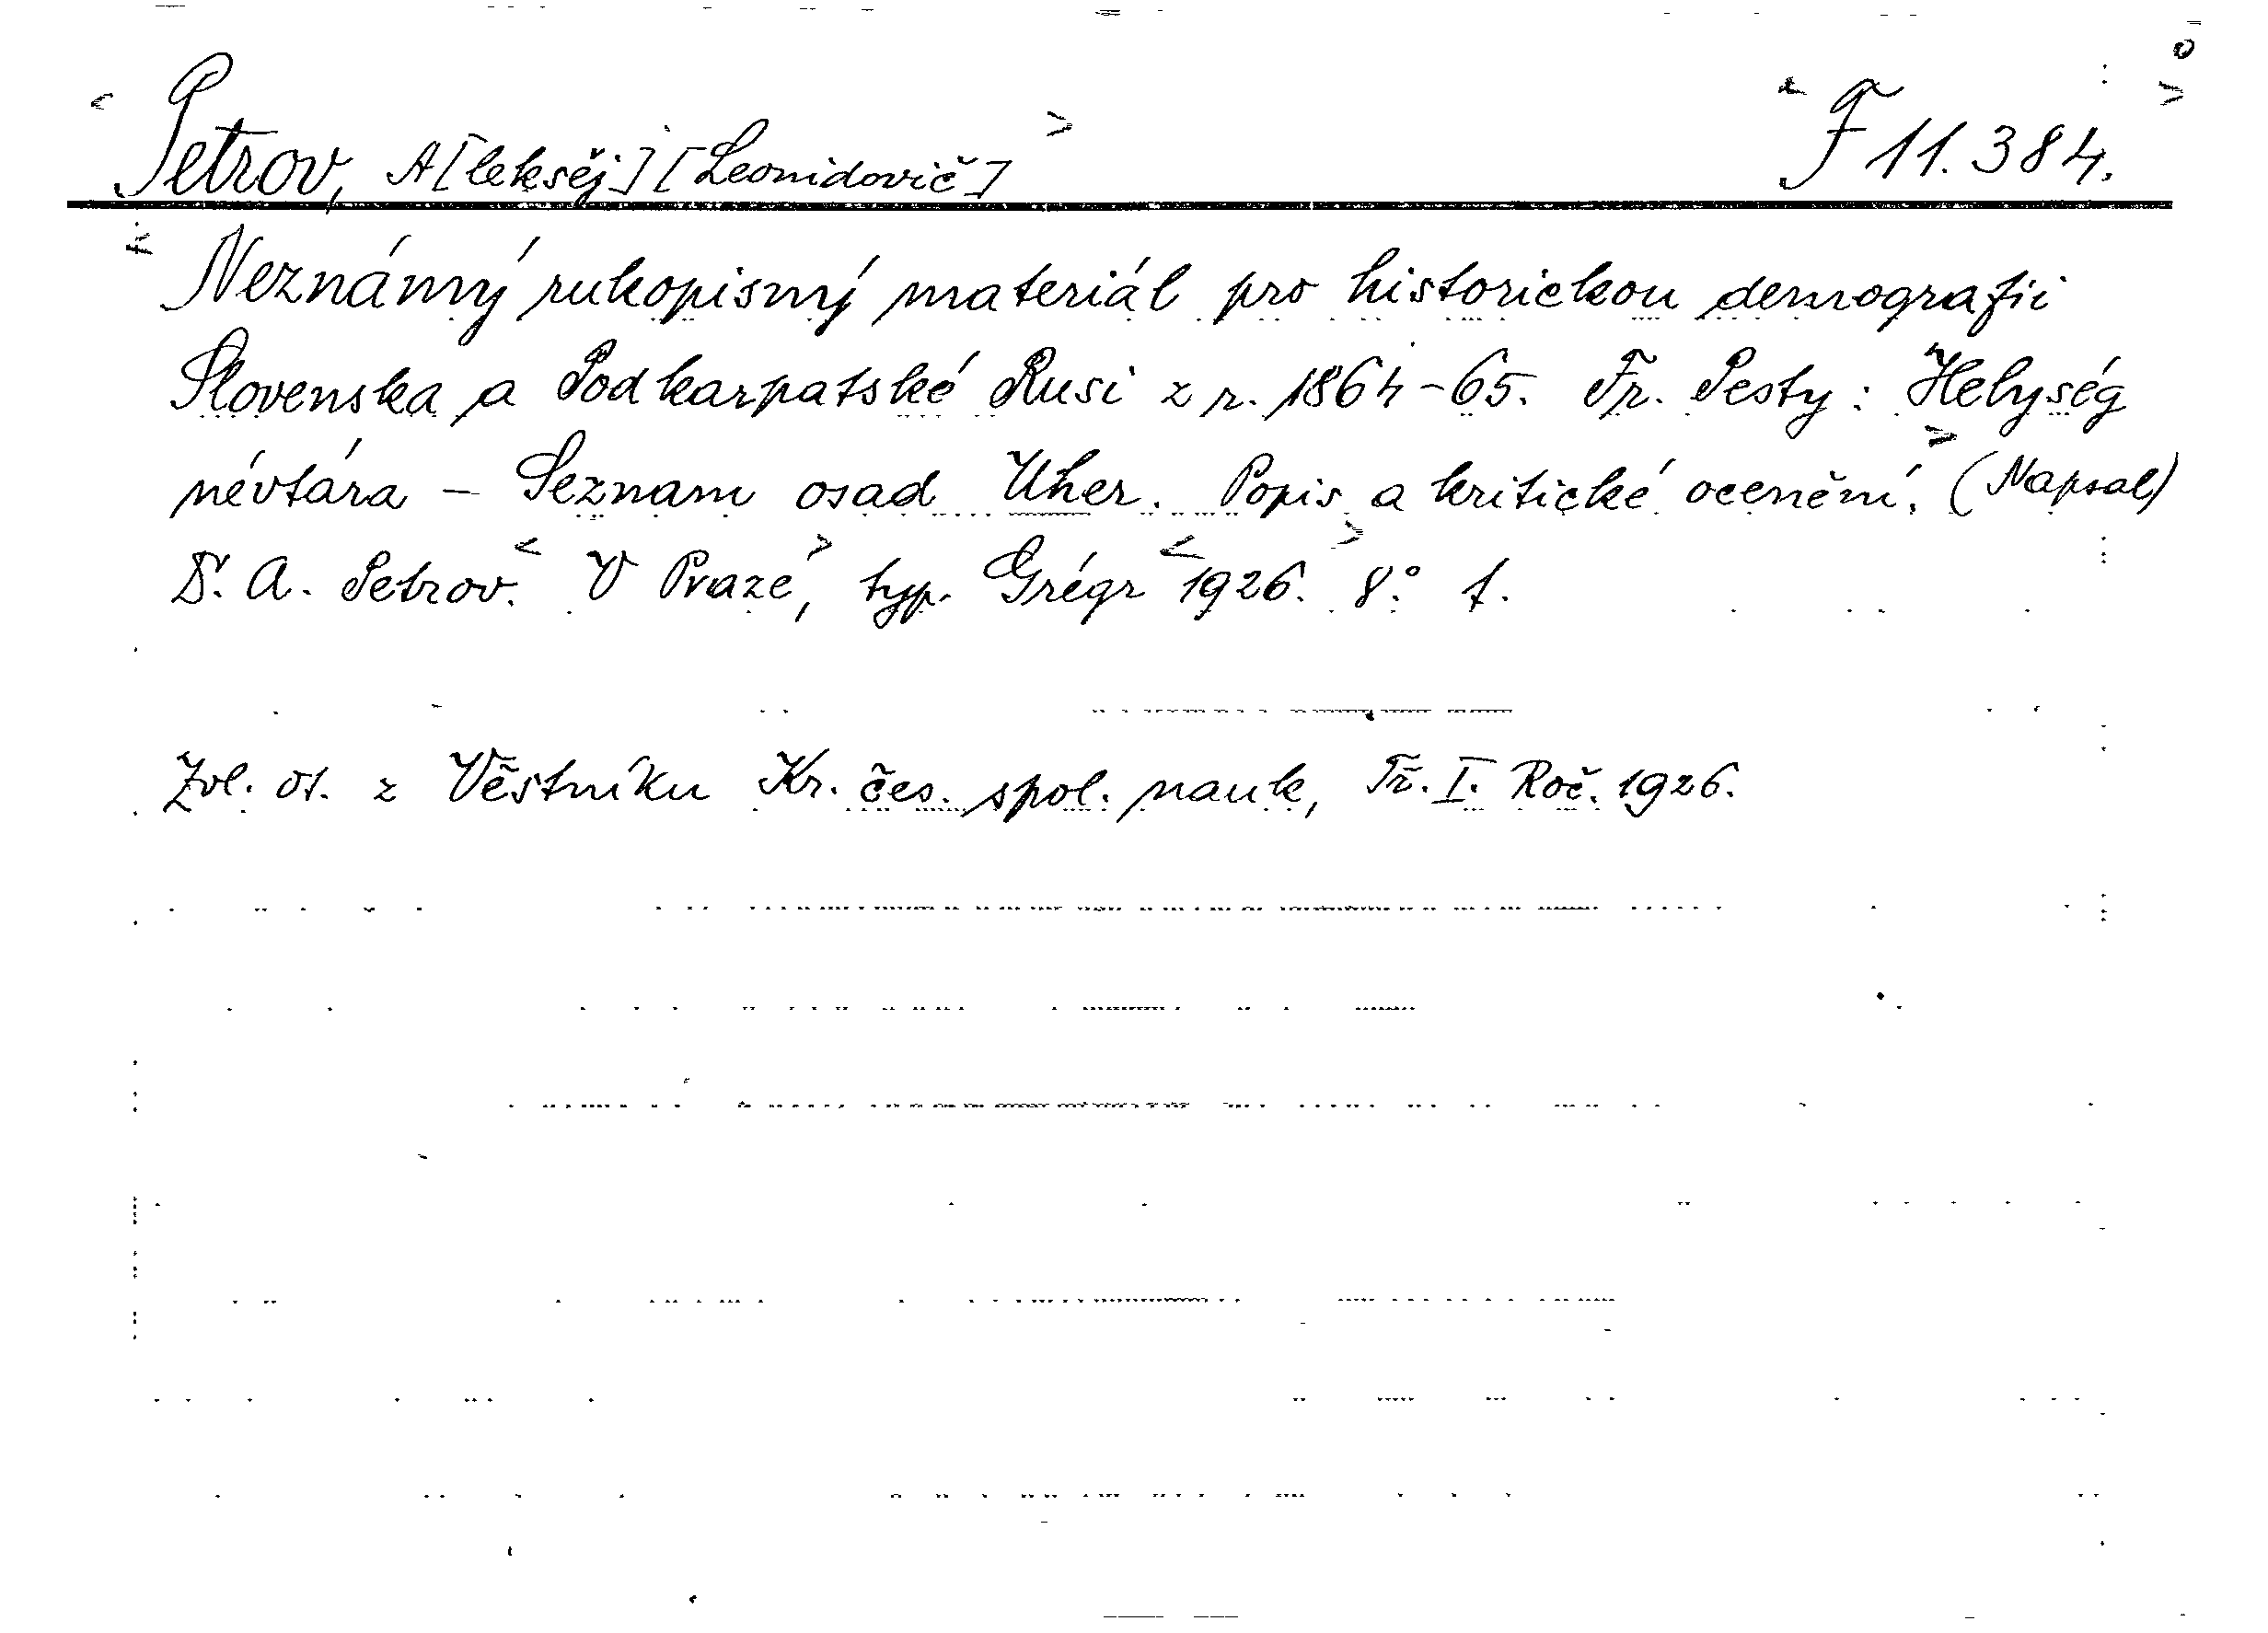 Petrov, A[leksěj] [Leonidovič] F 11.384.
Neznámý rukopisný materiál pro historickou demografii
Slovenska a Podkarpatské Rusi z r. 1864-65. Fr. Pesty: Helység
névtára - Seznam osad Uher. Popis a kritické ocenění. (Napsal)
Dr. A. Petrov. V Praze, typ. Grégr 1926. 8° f.
Zvl. ot. z Věstníku Kr. čes. spol. nauk, Tř. I. Roč. 1926.